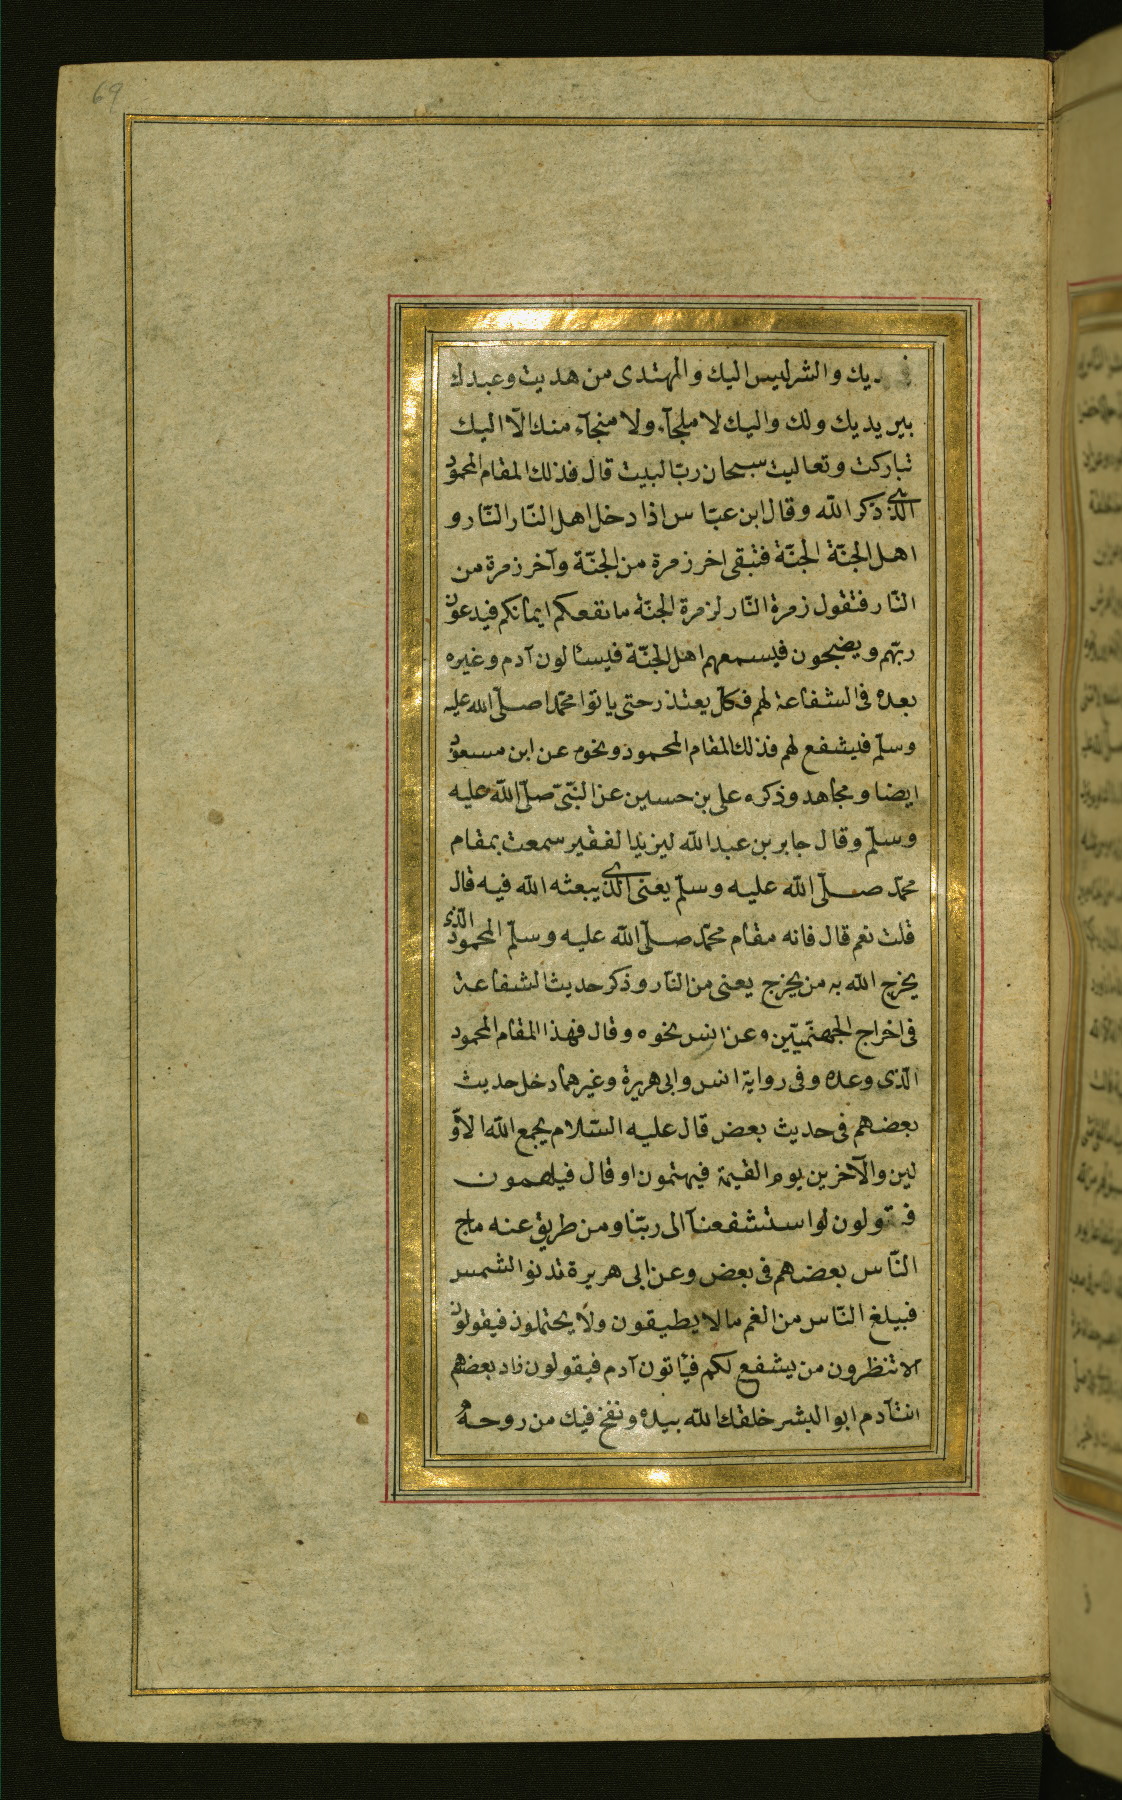 69
يديك والشر ليس اليك والمهتدى من هديت وعبدك
بين يديك ولك واليك لا ملجآء ولا منجآء منك الّا اليك
تباركت وتعاليت سبحان ربّ البيت قال فذلك المقام المحمود
الّذى ذكر الله وقال ابن عبّاس اذا دخل اهل النّار النّار و
اهل الجنّة الجنّة فتبقى اخر زمرة من الجنّة وآخر زمرة من
النّار فتقول زمرة النّار لزمرة الجنّة ما نفعكم ايمانكم فيدعون
ربّهم ويضجون فيسمعهم اهل الجنّة فيسئالون آدم وغيره
بعده فى الشفاعة لهم فكلّ يعتذر حتى ياتوا محمّدا صلّى الله عليه
وسلّم فيشفع لهم فذلك المقام المحمود ونحوه عن ابن مسعود
ايضا ومجاهد وذكره على بن حسين عن النّبىّ صلّى الله عليه
وسلّم وقال جابر بن عبد الله ليزيد الفقير سمعت بمقام
محمّد صلّى الله عليه وسلّم يعنى الّذى يبعثه الله فيه قال
قلت نعم قال فانه مقام محمّد صلّى الله عليه وسلّم المحمود الّذى
يخرج الله به من يخرج يعنى من النّار وذكر حديث الشفاعة
فى اخراج الجهنّميّين وعن انس نحوه وقال فهذا المقام المحمود
الّذى وعده وفى رواية انس وابى هريرة وغيرهما دخل حديث
بعضهم فى حديث بعض قال عليه السّلام يجمع الله الاوّ
لين والآخرين يوم القيمة فيهتمون او قال فيلهمون
فيقولون لو استشفعنآ الى ربّنا ومن طريق عنه ماج
النّاس بعضهم فى بعض وعن ابى هريرة تدنو الشمس
فيبلغ النّاس من الغم ما لا يطيقون ولا يحتملون فيقولون
الا تنظرون من يشفع لكم فيأتون آدم فيقولون زاد بعضهم
انت آدم ابو البشر خلقك الله بيده ونفخ فيك من روحه